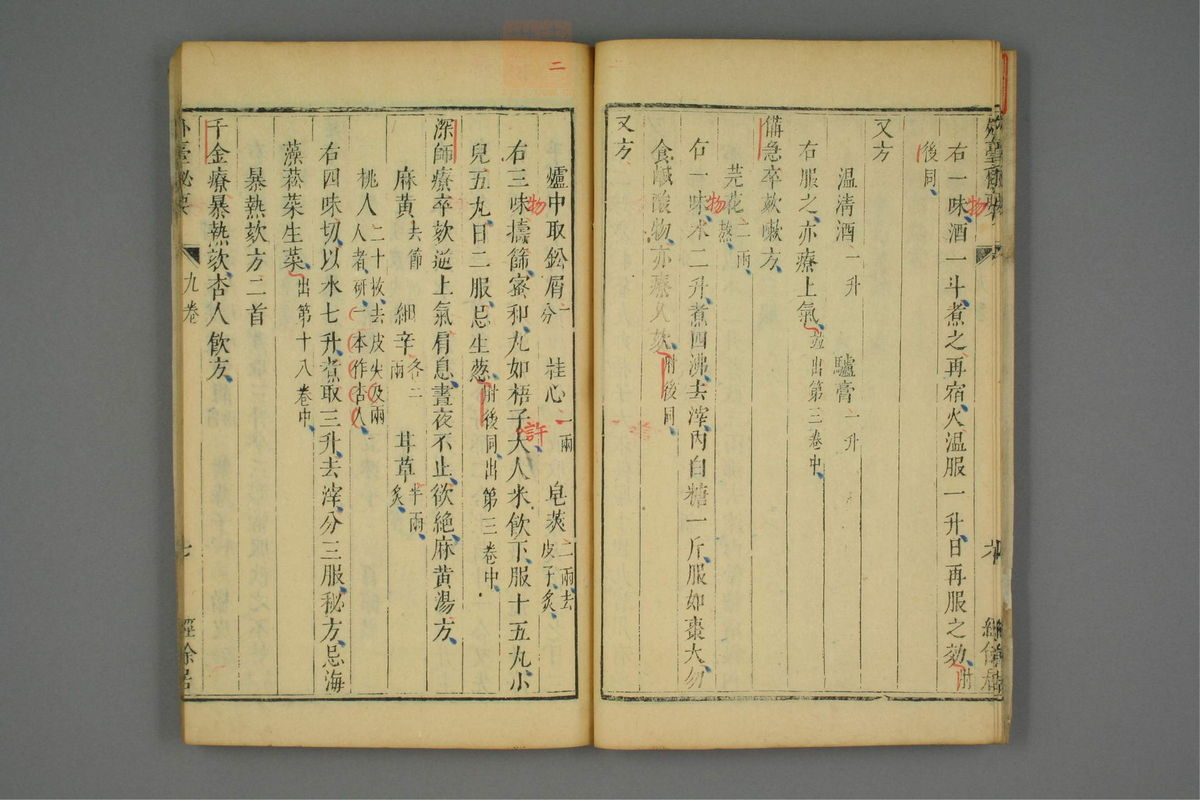 右一味酒一斗煮之再宿火溫服一升日再服之効肘
後同
又方
溫清酒一升 驢膏一升
右服之亦療上氣並出第三卷中
備急卒欬嗽方
芫花二兩熬
右一味水二升煮四沸去滓內白糖一斤服如棗大勿
食鹹酸物亦療久欬肘後同
又方
二
爐中取鈆屑一分 桂心一兩 皂莢二兩去皮子炙
右三味擣篩蜜和丸如梧子大人米飲下服十五丸小
兒五丸日二服忌生葱肘後同出第三卷中
深師療卒欬逆上氣肩息晝夜不止欲絶麻黃湯方
麻黃去節 細辛各二兩 甘草半兩炙
桃人二十枚去皮尖及兩人者研一本作杏人
右四味切以水七升煮取三升去滓分三服秘方忌海
藻菘菜生菜出第十八卷中
暴熱欬方二首
千金療暴熱欬杏人飲方
外臺秘要
九卷
七
經餘居
物
物
物
許